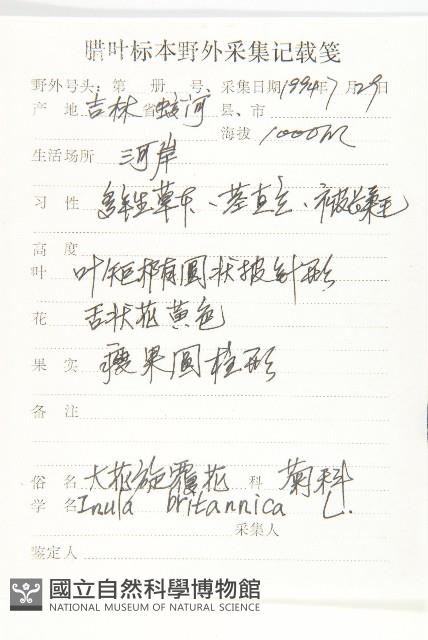 腊叶标本野外采集记载笺
野外号头：第 册 号、采集日期1994年7月29日
产 地 吉林省蛟河 县、市
海拔 1000m
生活场所 河岸
习 性 多年生草本、茎直立、被柔毛
高 度
叶 叶矩椭圆状披针形
花 舌状花黄色
果 实 瘦果圆柱形
备 注
俗 名 大花旋覆花 科 菊科
学 名 Inula britannica L.
采集人
鉴定人
國立自然科學博物館
NATIONAL MUSEUM OF NATURAL SCIENCE